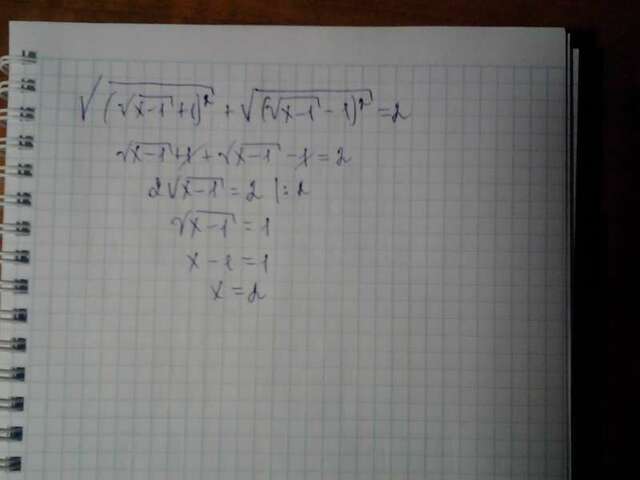 √(√(x-1)+1)² + √(√(x-1)-1)² = 2
√(x-1)+1+√(x-1)-1=2
2√(x-1) = 2 |:2
√(x-1) = 1
x-1=1
x=2